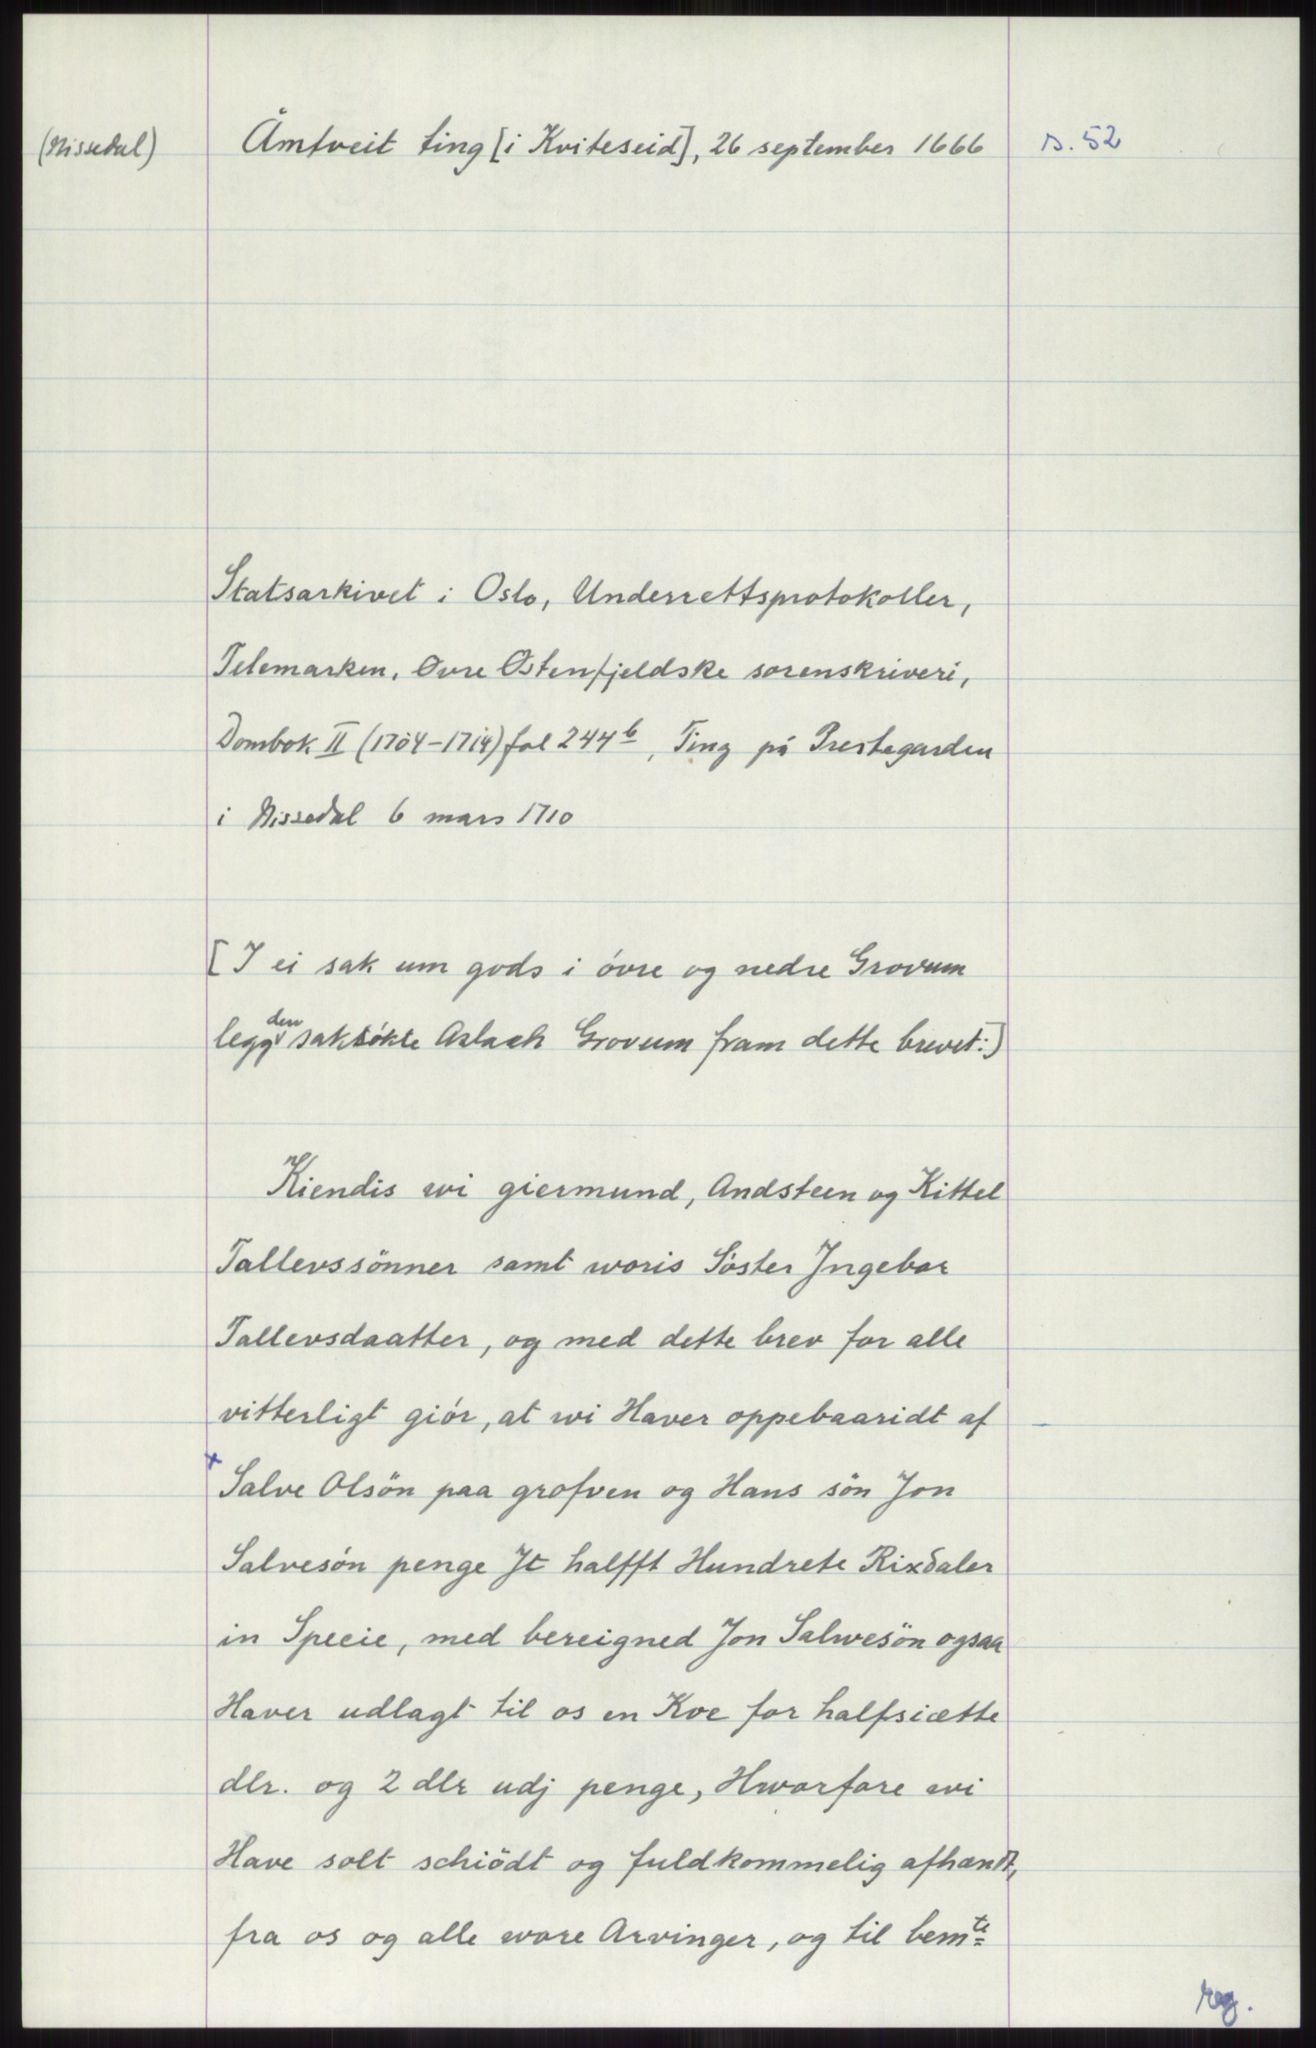 (Nissedal) Åmtveit ting [i Kviteseid], 26 september 1666 s. 52
Statsarkivet i Oslo, Underrettsprotokoller,
Telemarken, Øvre Østenfjeldske sorenskriveri,
Dombok II (1704-1714) fol 244 b, Ting på Prestegarden
i Nissedal 6 mars 1710
[I ei sak um gods i óvre og nedre Grovum
legg den saksókte Aslach Grovum fram dette brevet:]
Kiendis wi giermund, Andsteen og Kittel
Tallevssönner samt woris Söster Jngebor
Tallevsdaatter, og med dette brev for alle
vitterligt giór, at wi Haver oppebaaridt af
x Salve Olsön paa grofven og Hans sön Jon
Salvesón penge Jt halfft Hundrete Rixdaler
in Specie, med bereigned Jon Salwesön ogsaa
Haver udlagt til os en Koe for halfsiætte
dlr. og 2 dlr udj penge, Hworfore wi
Have solt schiödt og fuldkommelig afhændt,
fra os og alle wore Arvinger, og til bemte
reg.